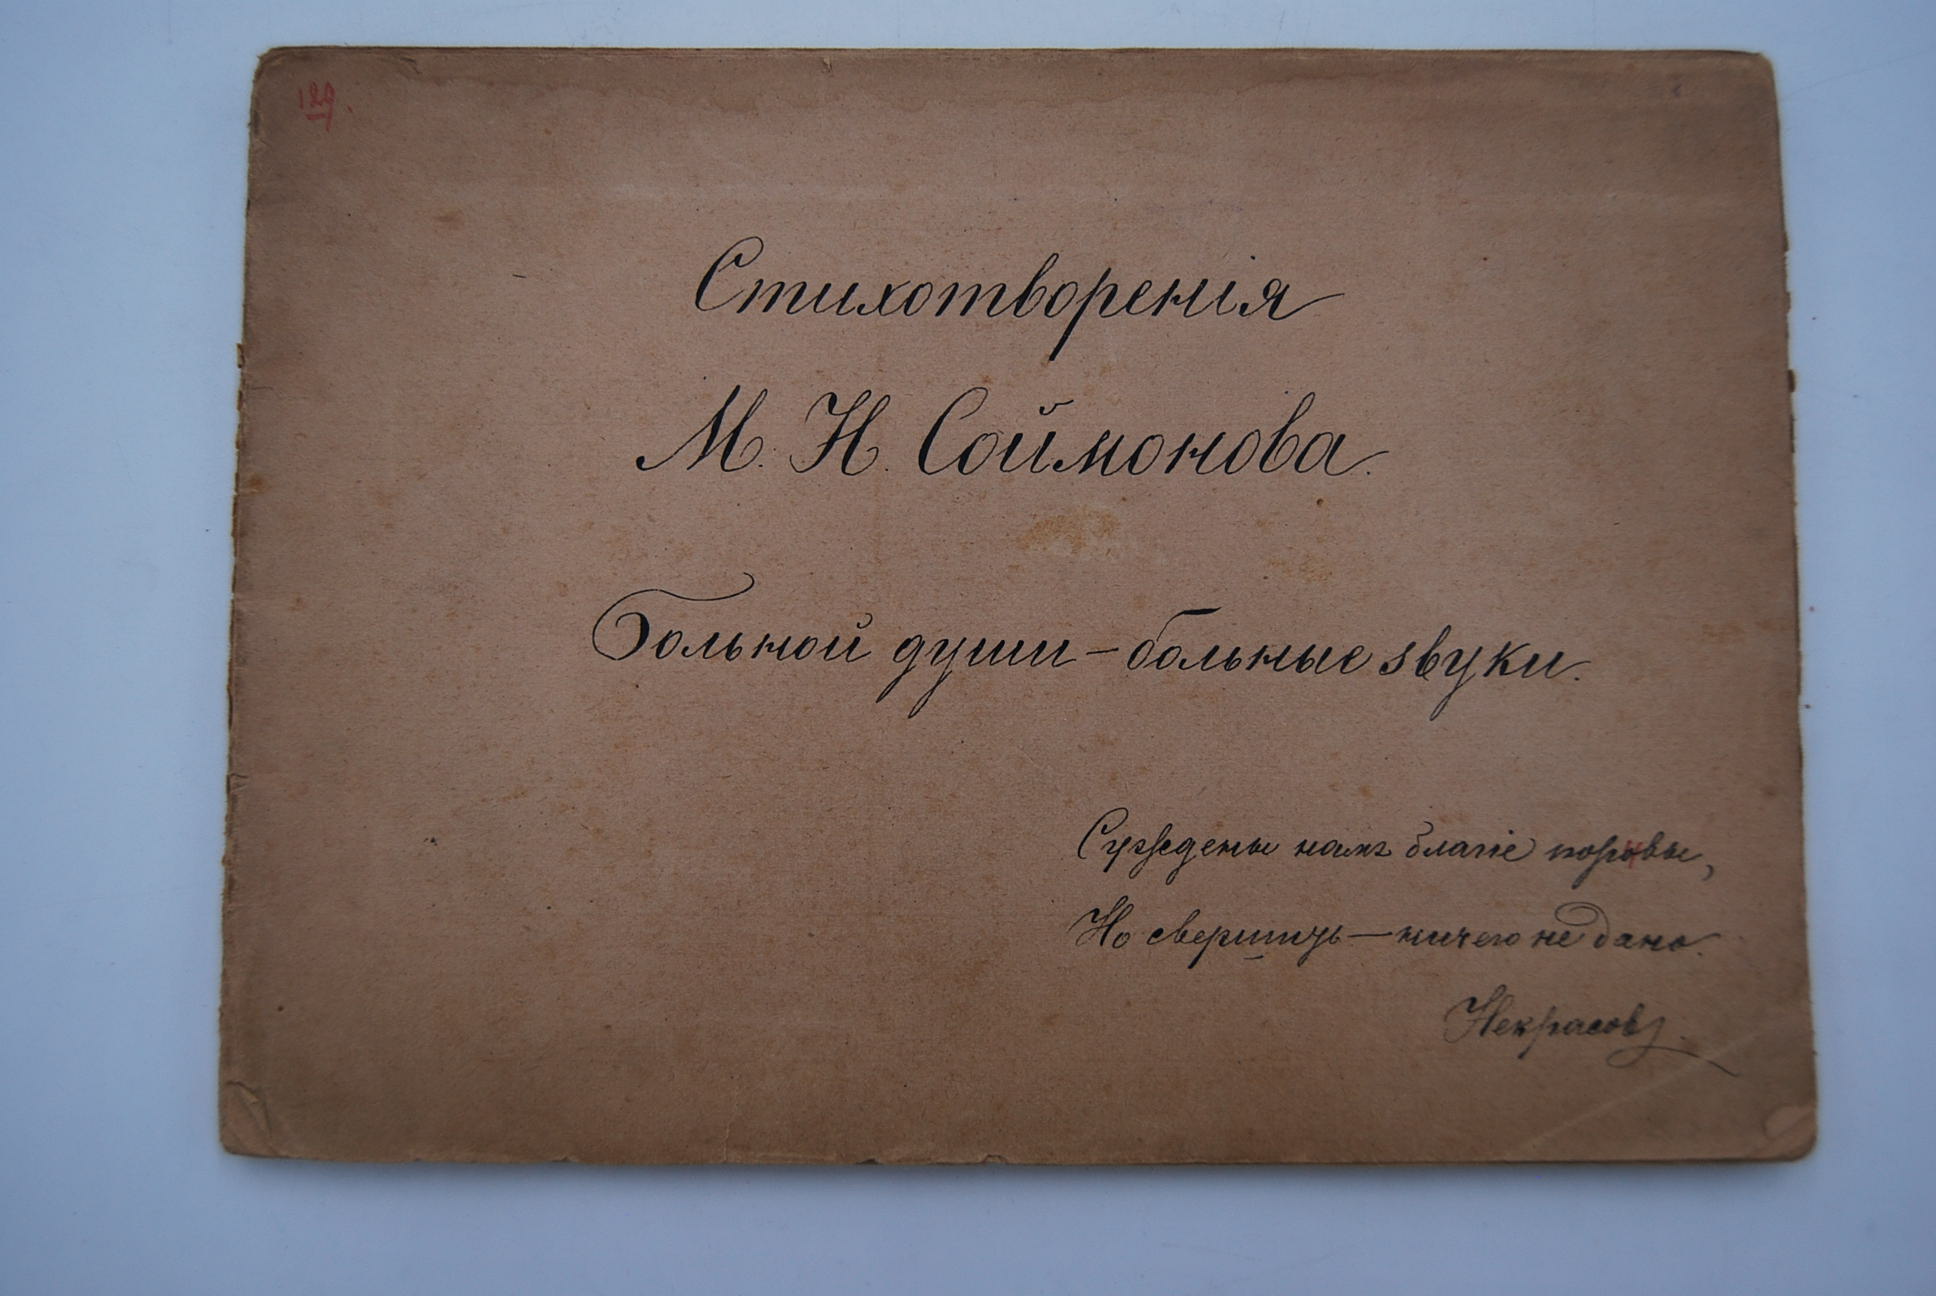 129.
Стихотворенія
М. Н. Соймонова.
Больной души – больные звуки.
Суждены намъ благіе порывы,
Но свершить – ничего не дано.
Некрасовъ.